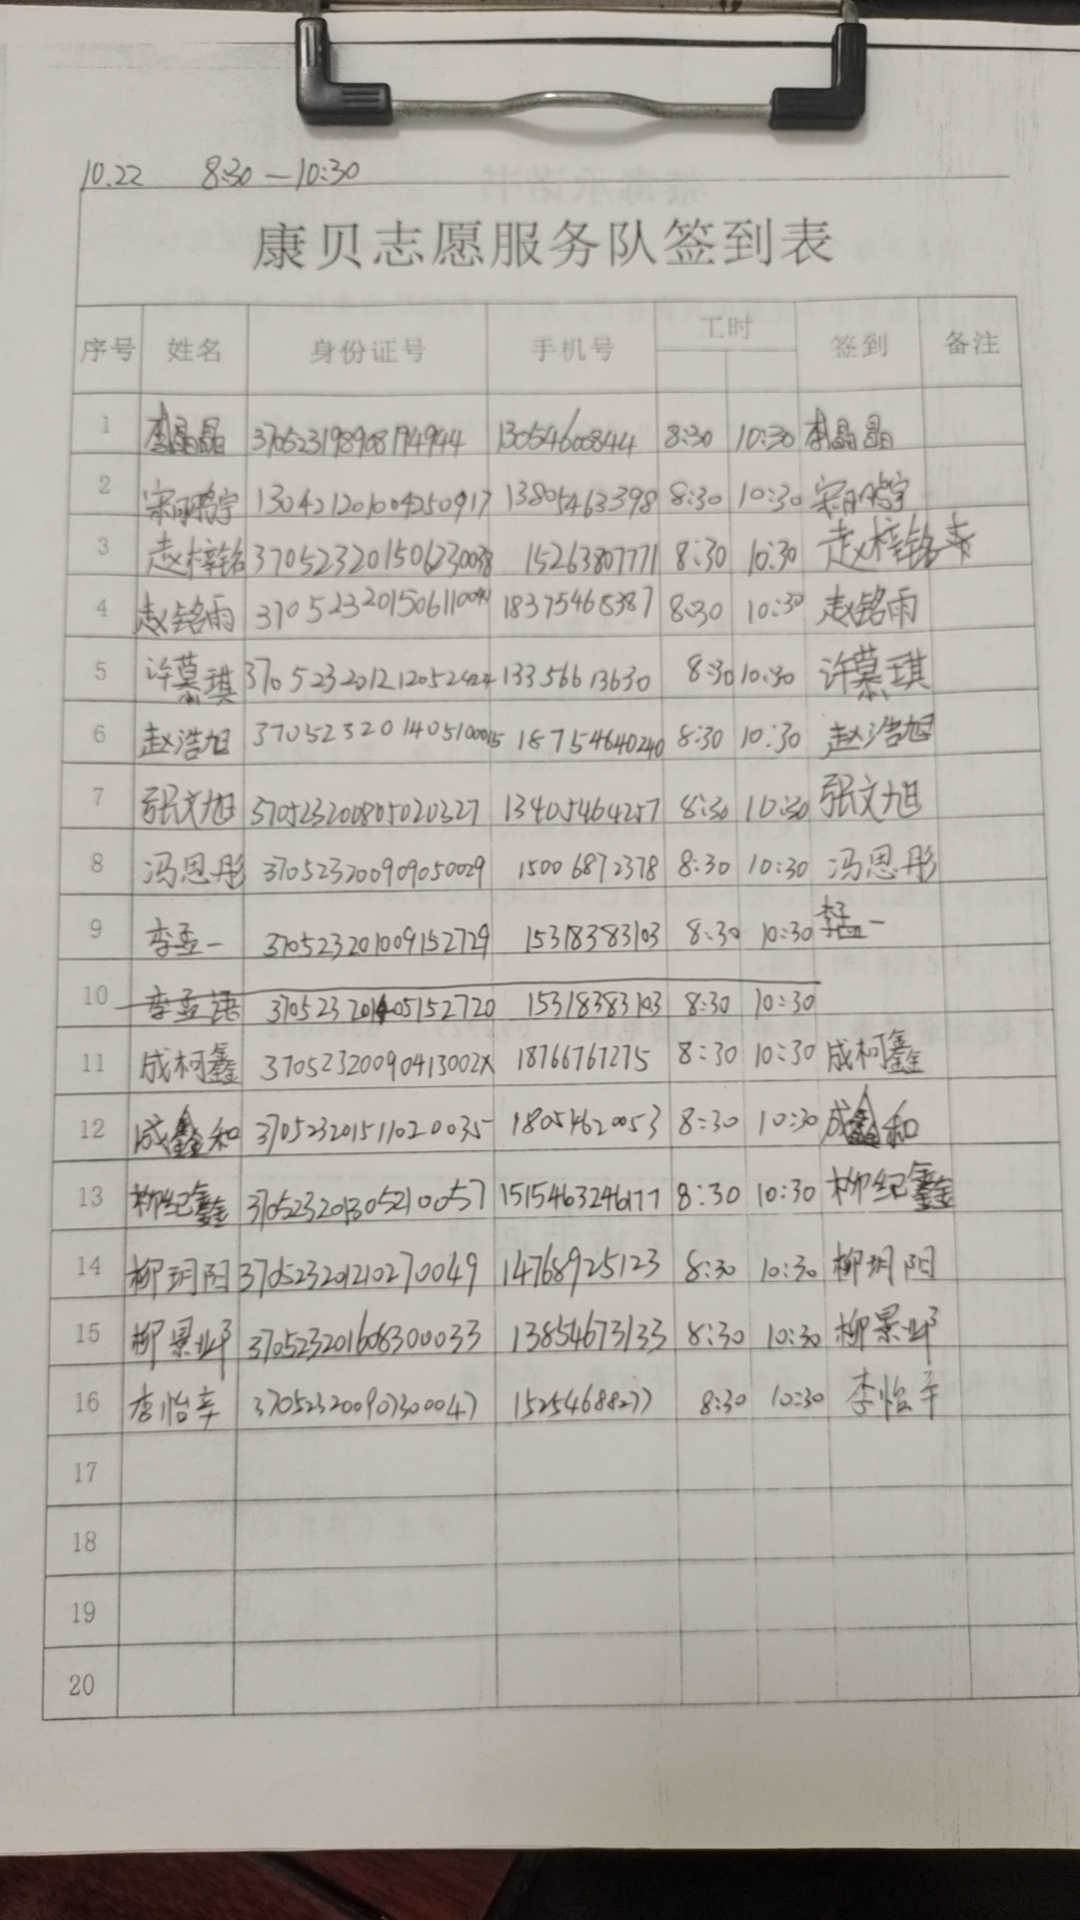 10.22 8:30—10:30
康贝志愿服务队签到表
序号 姓名 身份证号 手机号 工时 签到 备注
1 李晶晶 13054600844 8:30 10:30 李晶晶
2 宋鹏宇 130421201004250917 13805463398 8:30 10:30 宋鹏宇
3 赵梓铭 370523201506230038 15263807771 8:30 10:30 赵梓铭
4 赵铭雨 18375465387 8:30 10:30 赵铭雨
5 许慕琪 13356613630 8:30 10:30 许慕琪
6 赵浩旭 370523201405100015 18754640240 8:30 10:30 赵浩旭
7 张文旭 370523200805020327 13405464257 8:30 10:30 张文旭
8 冯思彤 370523200909050029 15006872378 8:30 10:30 冯思彤
9 李孟一 370523201009152729 15318383103 8:30 10:30 李孟一
10 李孟语 370523201405152720 15318383103 8:30 10:30
11 成柯鑫 37052320090413002X 18766767275 8:30 10:30 成柯鑫
12 成鑫和 370523201511020035 18054620053 8:30 10:30 成鑫和
13 柳纪鑫 370523201305210057 8:30 10:30 柳纪鑫
14 柳玥阳 370523201210270049 14768925123 8:30 10:30 柳玥阳
15 柳景邺 370523201608300033 13854673133 8:30 10:30 柳景邺
16 李怡辛 370523200907300047 15254688277 8:30 10:30 李怡辛
17
18
19
20